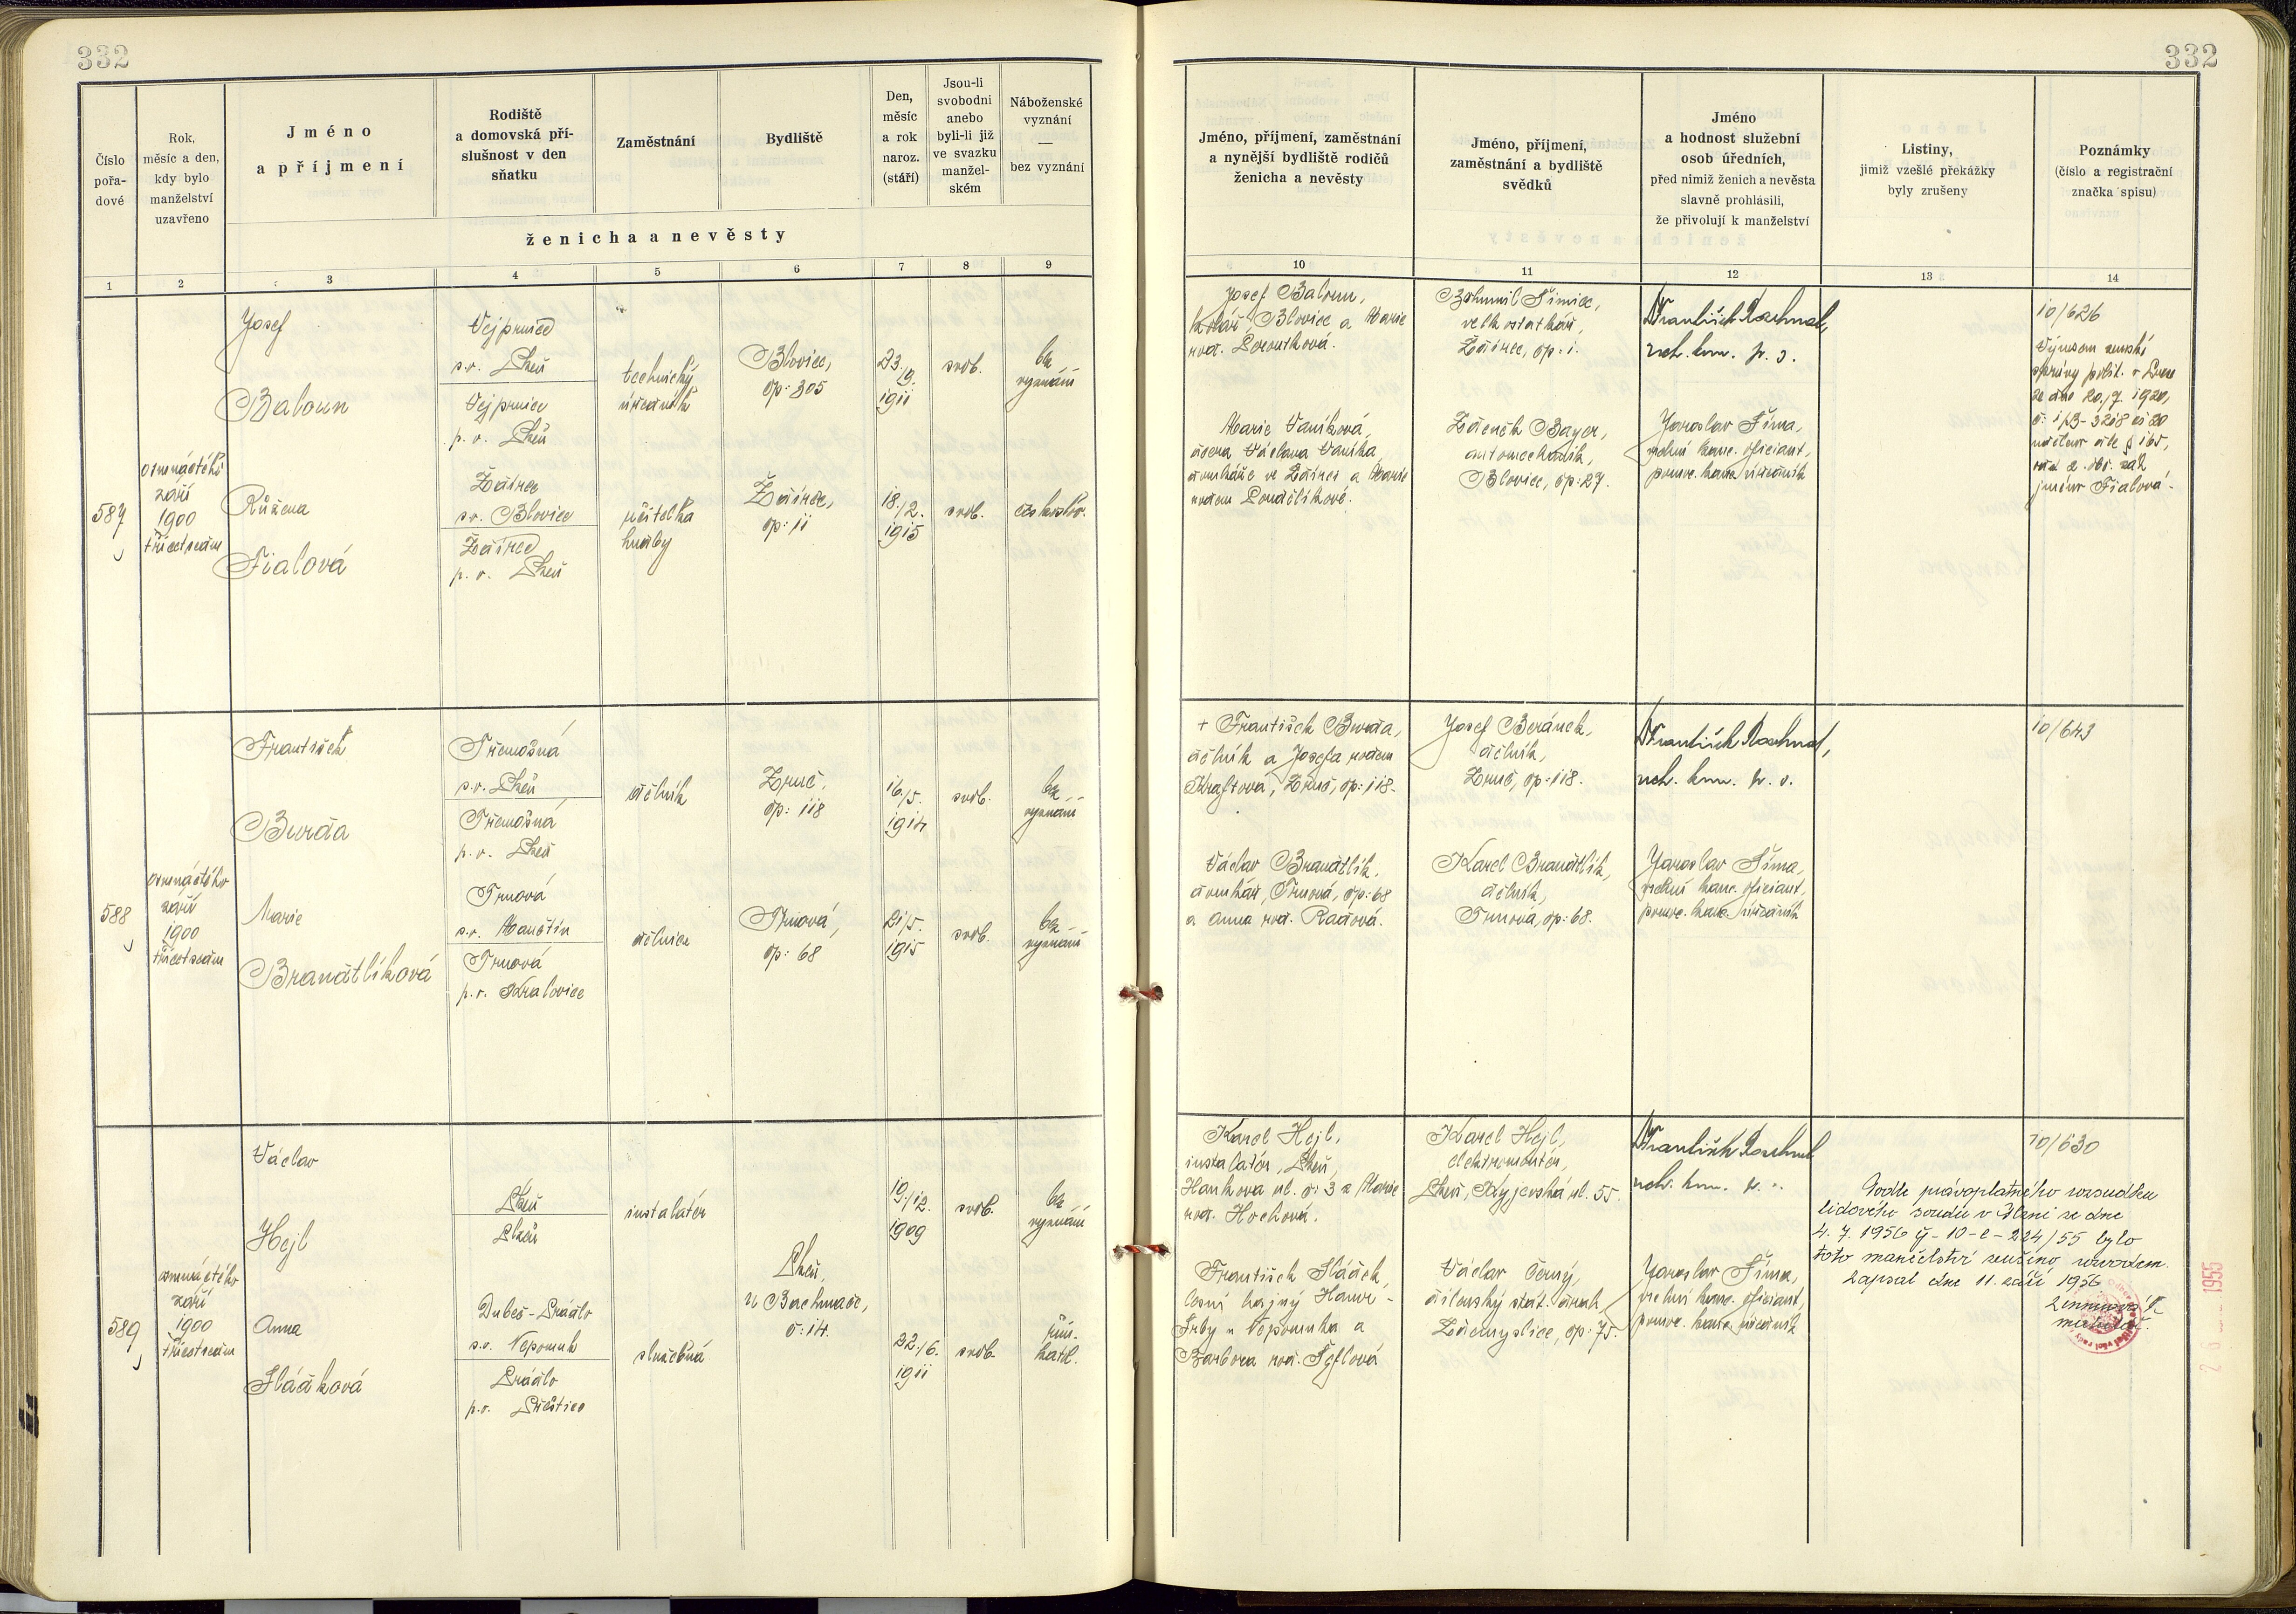 332
332
Číslo
pořa-
dové
Rok,
měsíc a den,
kdy bylo
manželství
uzavřeno
Jméno
a příjmení
Rodiště
a domovská pří-
slušnost v den
sňatku
Zaměstnání
Bydliště
Den,
měsíc
a rok
naroz.
(stáří)
Jsou-li
svobodni
anebo
byli-li již
ve svazku
manžel-
ském
Náboženské
vyznání
—
bez vyznání
ženicha a nevěsty
Jméno, příjmení, zaměstnání
a nynější bydliště rodičů
ženicha a nevěsty
Jméno, příjmení,
zaměstnání a bydliště
svědků
Jméno
a hodnost služební
osob úředních,
před nimiž ženich a nevěsta
slavně prohlásili,
že přivolují k manželství
Listiny,
jimiž vzešlé překážky
byly zrušeny
Poznámky
(číslo a registrační
značka spisu)
1 2 3 4 5 6 7 8 9
10 11 12 13 14
587
osmnáctého
září
1900
třicetsedm
Josef
Baloun
Vejprnice
s.o. Plzeň
Vejprnice
p. o. Plzeň
technický
úředník
Blovice,
čp: 305
23./9.
1911
svob.
bez
vyznání
Růžena
Fialová
Ždírec
s.o. Blovice
Ždírec
p. o. Plzeň
učitelka
hudby
Ždírec,
čp: 11
18./2.
1915
svob.
československ.
Josef Baloun,
kolář, Blovice a Marie
rod.
Marie Vaníková,
dcera Václava Vaníka,
domkáře ve Ždírci a Marie
rodem Loudělíkové.
Bohumil Šimice,
velkostatkář,
Ždírec, čp: 1.
Zdeněk Bayer,
automechanik,
Blovice, čp: 27.
František
rch. kom. p. s.
Jaroslav Šíma,
vrchní kanc. oficiant,
pomoc. kanc. úředník
10/626
Výnosem zemské
správy polit. v Praze
ze dne 20./7. 1920,
jméno Fialová.
588
osmnáctého
září
1900
třicetsedm
František
Burda
Třemošná
s.o. Plzeň
Třemošná
p. o. Plzeň
dělník
Zruč,
čp: 118
16./5.
1914
svob.
bez
vyznání
Marie
Brandtlíková
Trnová
s.o. Manětín
Trnová
p. o. Kralovice
dělnice
Trnová,
čp: 68
21/5.
1915
svob.
bez
vyznání
+ František Burda,
dělník a Josefa rodem
Kraftová, Zruč, čp: 118.
Václav Brandtlík,
domkář, Trnová, čp: 68
a Anna rod. Radová.
Josef Beránek,
dělník,
Zruč, čp: 118.
Karel Brandtlík,
dělník,
Trnová, čp: 68.
František
rch. kom. p. s.
Jaroslav Šíma,
vrchní kanc. oficiant,
pomoc. kanc. úředník
10/643
589
osmnáctého
září
1900
třicetsedm
Václav
Hejl
Plzeň
Plzeň
instalatér
19./12.
1909
svob.
bez
vyznání
Plzeň,
U Bachmače,
č: 14.
Anna
Sládková
Dubeč-Prádlo
s.o. Nepomuk
Prádlo
p. o. Přeštice
služebná
22./6.
1911
svob.
řím.
katol.
Karel Hejl,
instalatér, Plzeň,
Hankova ul. č: 3 a Marie
rod. Hochová.
František Sládek,
lesní hajný
u Nepomuka a
Barbora rod.
Karel Hejl,
elektromontér,
Plzeň, Kyjevská ul. 55.
Václav Černý,
dílenský stát. drah,
Zdemyslice, čp: 75.
František
rch. kom. p. s.
Jaroslav Šíma,
vrchní kanc. oficiant,
pomoc. kanc. úředník
10/630
Podle právoplatného rozsudku
lidového soudu v Plzni ze dne
4. 7. 1956 čj - 10-c-224/55 bylo
toto manželství zrušeno rozvodem.
Zapsal dne 11. září 1956
matrikář.
1955